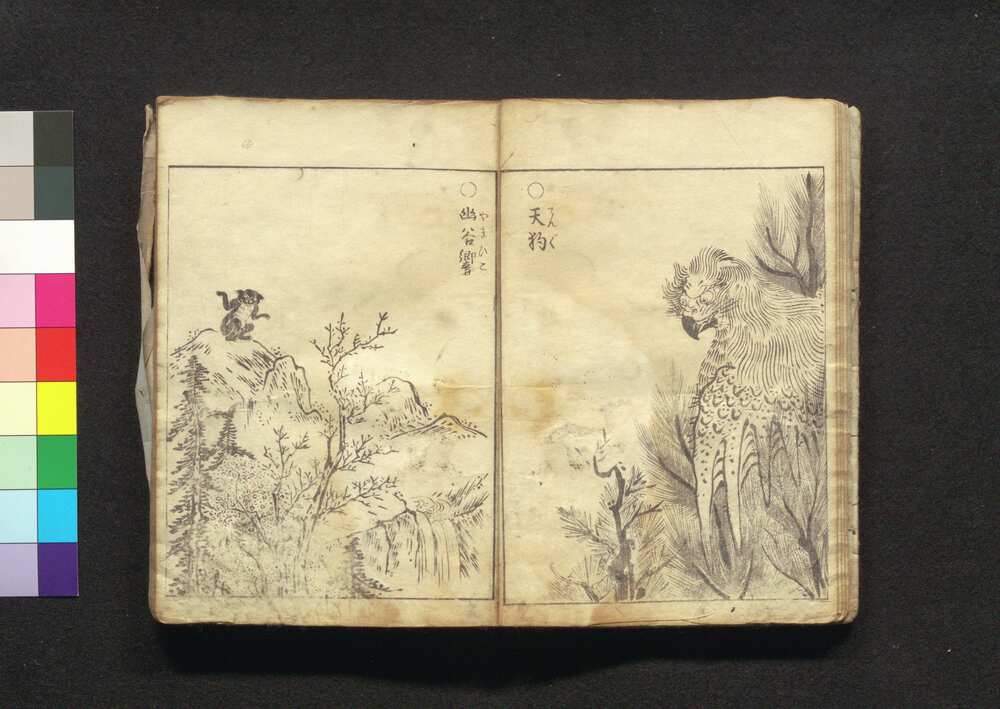 ○天狗
てんぐ
○幽谷響
やまびこ